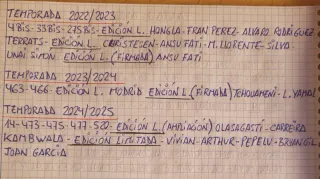 TEMPORADA 2022/2023
4BIS-33BIS-275BIS-EDICIÓN L. HONGLA-FRAN PEREZ-ALVARO RODRÍGUEZ
TERRATS-EDICIÓN L. CHRISTESEN-ANSU FATI-M. LLORENTE-SILVA
UNAI SIMON EDICIÓN L (FIRMADA) ANSU FATI
TEMPORADA 2023/2024
463-466-EDICION L. MODRID EDICION L (FIRMADA) TCHOUAMENI-L. YAMAL
TEMPORADA 2024/2025
14-473-475-477-520-EDICIÓN L. (AMPLIACIÓN) OLASAGASTI-CARREIRA
KAMBWALA-EDICIÓN LIMITADA-VIVIAN-ARTHUR-PEPELU-BRYAN GIL
JOAN GARCIA